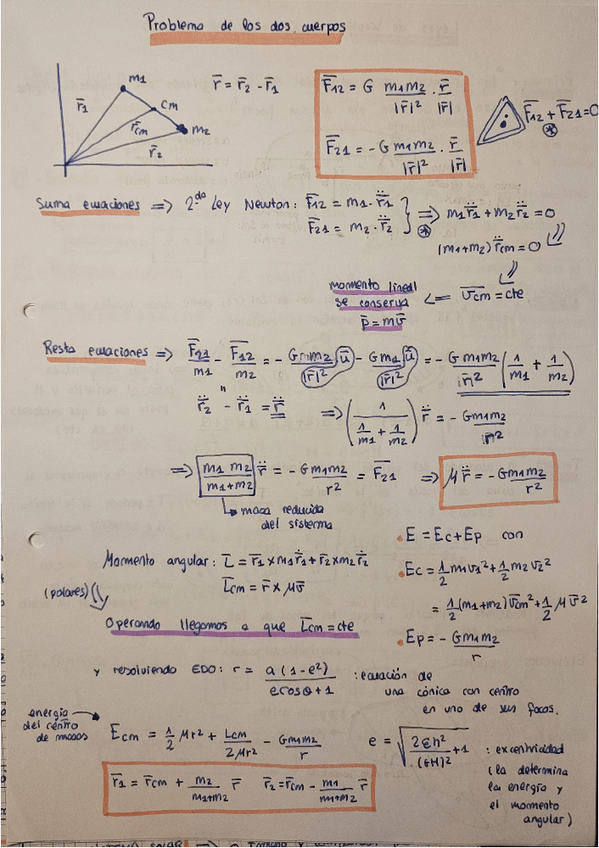 Problema de los dos cuerpos
m1
cm
m2
r̄1
r̄cm
r̄2
r̄ = r̄2 - r̄1
F̄12 = G m1m2/|r̄|² · r̄/|r̄|
F̄21 = - G m1m2/|r̄|² · r̄/|r̄|
F̄12 + F̄21 = 0
*
Suma ecuaciones => 2da Ley Newton: F̄12 = m1 · r̄̈1
F̄21 = m2 · r̄̈2
} * => m1r̄̈1 + m2r̄̈2 = 0
(m1+m2) r̄̈cm = 0
momento lineal
se conserva <= v̄cm = cte
p̄ = mv̄
Resta ecuaciones => F̄21/m1 - F̄12/m2 = - Gm1m2/|r̄|² ū - Gm1/|r̄|² ū = - G m1m2/|r̄|² (1/m1 + 1/m2)
"
r̄̈2 - r̄̈1 = r̄̈ => (1/(1/m1 + 1/m2)) r̄̈ = - Gm1m2/|r̄|²
=> m1 m2/(m1+m2) r̄̈ = - Gm1m2/r² = F̄21 => μ r̄̈ = - Gm1m2/r²
masa reducida
del sistema
. E = Ec + Ep con
Momento angular: L̄ = r̄1 × m1ṙ̄1 + r̄2 × m2ṙ̄2
. Ec = 1/2 m1v1² + 1/2 m2 v2²
L̄cm = r̄ × μv̄
= 1/2 (m1+m2) v̄cm² + 1/2 μ v̄²
(polares)
Operando llegamos a que L̄cm = cte
. Ep = - Gm1m2/r
y resolviendo EDO: r = a(1-e²)/(e cos θ + 1) : ecuación de
una cónica con centro
en uno de sus focos.
energía
del centro
de masas
Ecm = 1/2 μr² + Lcm/2μr² - Gm1m2/r
e = √(2εh²/(GM)² + 1) : excentricidad
(la determina
la energía y
el momento
angular)
r̄1 = r̄cm + m2/(m1+m2) r̄ r̄2 = r̄cm - m1/(m1+m2) r̄